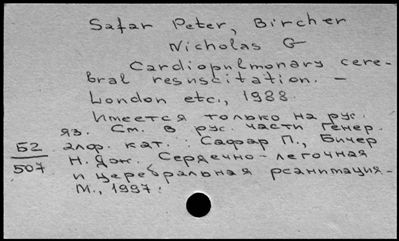 Safar Peter, Bircher
Nicholas G
Cardiopulmonary cere-
bral resuscitation. –
London etc., 1988.
Имеется только на рус.
яз. См. в рус. части генер.
алф. кат.: Сафар П., Бичер
Н. Дж. Сердечно-легочная
и церебральная реанимация.-
М., 1997.
Б2
507